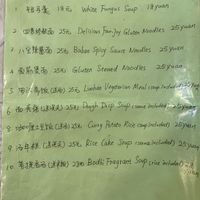 1 银耳羹 18元 White Fungus Soup 18yuan
2 四喜烤麸面 25元 Delicious Fan-Joy Gluten Noodles 25yuan
3 八宝辣酱面 25元 Babao Spicy Sauce Noodles 25yuan
4 面筋面 25元 Gluten Stewed Noodles 25yuan
5 25元 Luohan Vegetarian Meal (soup included) 25yuan
6 25元 Dough Drop Soup (same included) 25yuan
7 咖喱土豆饭 (送汤) 25元 Curry Potato Rice (soup included) 25yuan
9 汤年糕 25元 Rice Cake Soup (same included) 25yuan
10 28元 Bodhi Fragrant Soup (rice included) 28yuan